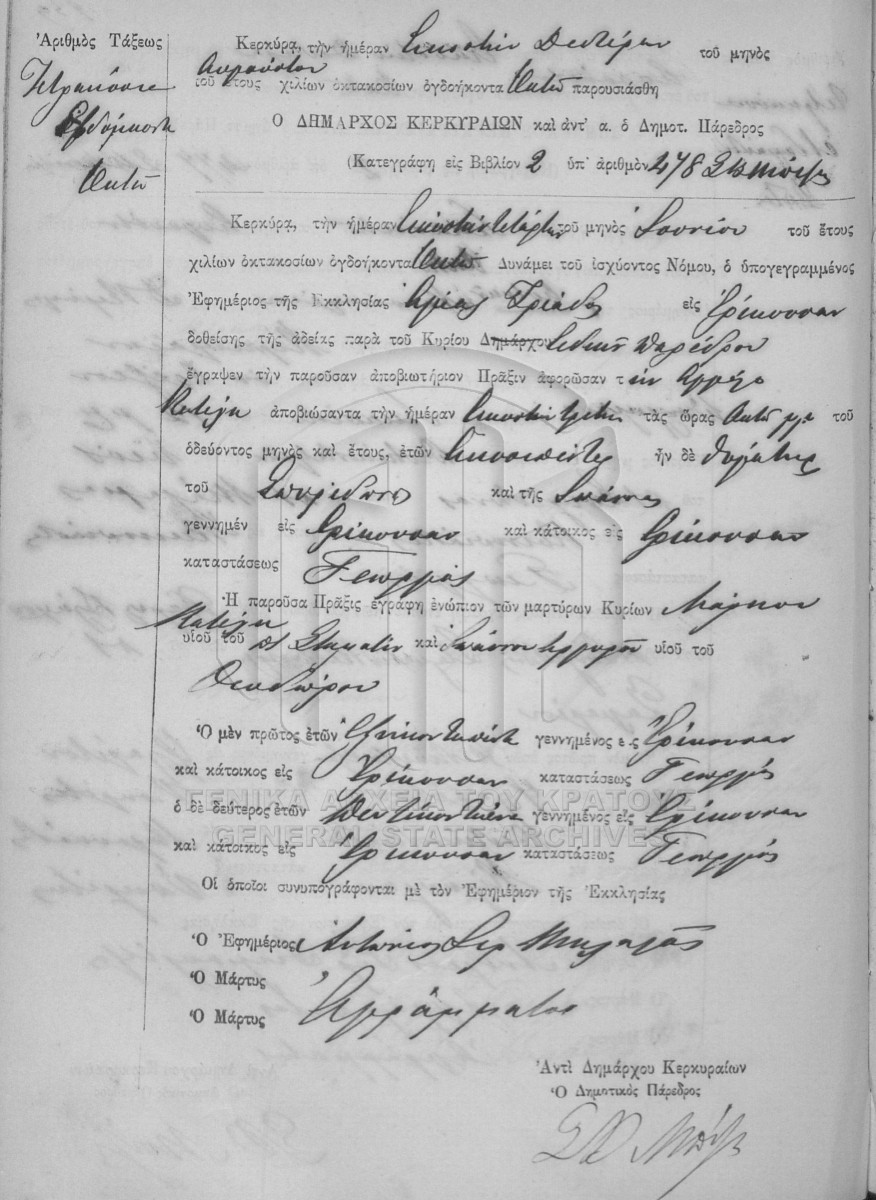 Ἀριθμὸς Τάξεως
Τετρακόσια
Ἑβδομήκοντα
Ὀκτὼ
Κερκύρα, τὴν ἡμέραν Εἰκοστὴν Δευτέραν τοῦ μηνὸς
Αὐγούστου
τοῦ ἔτους χιλίων ὀκτακοσίων ὀγδοήκοντα Ὀκτὼ παρουσιάσθη
Ο ΔΗΜΑΡΧΟΣ ΚΕΡΚΥΡΑΙΩΝ καὶ ἀντ' α. ὁ Δημοτ. Πάρεδρος
(Κατεγράφη εἰς Βιβλίον 2 ὑπ' ἀριθμὸν 478
Κερκύρα, τὴν ἡμέραν Εἰκοστὴν τετάρτην τοῦ μηνὸς Ἰουνίου τοῦ ἔτους
χιλίων ὀκτακοσίων ὀγδοήκοντα Ὀκτὼ Δυνάμει τοῦ ἰσχύοντος Νόμου, ὁ ὑπογεγραμμένος
Ἐφημέριος τῆς Εκκλησίας Ἁγίας Τριάδος εἰς Ἐρίκουσαν
δοθείσης τῆς ἀδείας παρὰ τοῦ Κυρίου Δημάρχου Εἰδικοῦ Παρέδρου
ἔγραψεν τὴν παροῦσαν ἀποβιωτήριον Πρᾶξιν ἀφορῶσαν τ ὴν
Κατέχη ἀποβιώσαντα τὴν ἡμέραν Εἰκοστὴν τρίτην τὰς ὥρας Ὀκτὼ μ.μ. τοῦ
ὁδεύοντος μηνὸς καὶ ἔτους, ἐτῶν Εἰκοσιπέντε ἦν δὲ θυγάτηρ
τοῦ Σπυρίδωνος καὶ τῆς Ἰωάννας
γεννημέν εἰς Ἐρίκουσαν καὶ κάτοικος εἰς Ἐρίκουσαν
καταστάσεως Γεωργὸς
Ἡ παροῦσα Πρᾶξις ἐγράφη ἐνώπιον τῶν μαρτύρων Κυρίων Μάρκου
Κατέχη
υἱοῦ τοῦ Σταμάτη καὶ Ἰωάννου Ἀργυροῦ υἱοῦ τοῦ
Θεοδώρου
Ὁ μὲν πρῶτος ἐτῶν Ἑξήκοντα πέντε γεννημένος εἰς Ἐρίκουσαν
καὶ κάτοικος εἰς Ἐρίκουσαν καταστάσεως Γεωργὸς
ὁ δὲ δεύτερος ἐτῶν Πεντήκοντα γεννημένος εἰς Ἐρίκουσαν
καὶ κάτοικος εἰς Ἐρίκουσαν καταστάσεως Γεωργὸς
Οἱ ὁποῖοι συνυπογράφονται μὲ τὸν Ἐφημέριον τῆς Ἐκκλησίας
Ὁ Ἐφημέριος Ἀντώνιος Ἱερ
Ὁ Μάρτυς
Ὁ Μάρτυς Ἀγράμματοι
Ἀντὶ Δημάρχου Κερκυραίων
Ὁ Δημοτικὸς Πάρεδρος
ΓΕΝΙΚΑ ΑΡΧΕΙΑ ΤΟΥ ΚΡΑΤΟΥΣ
GENERAL STATE ARCHIVES